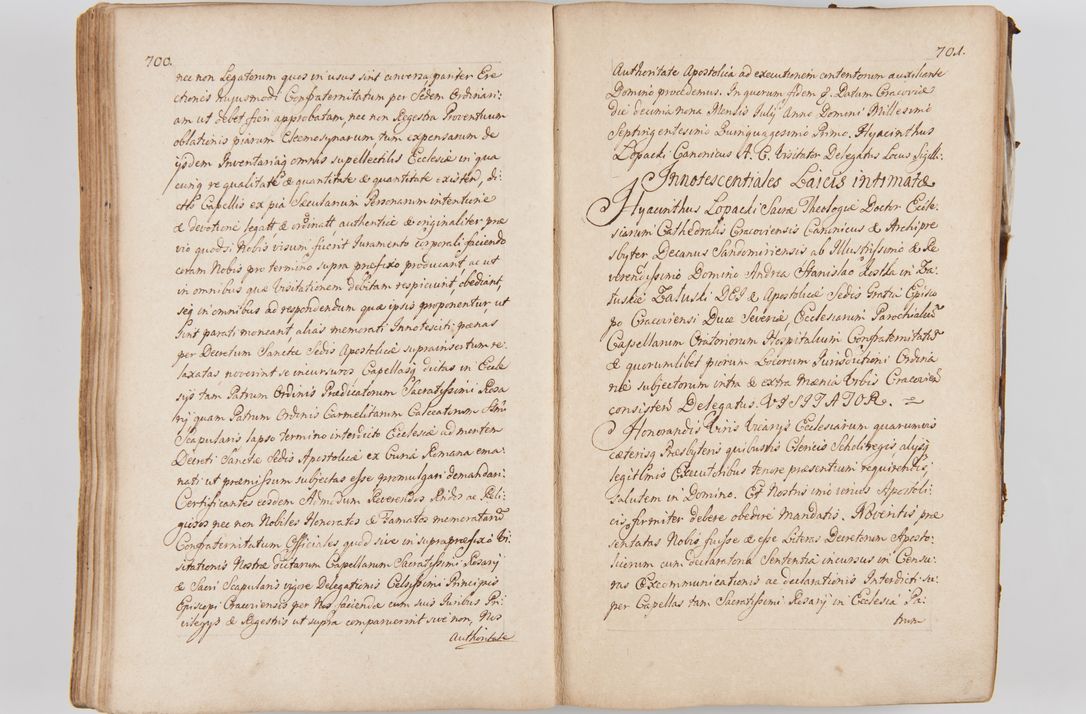 700.
nec non Legatorum quos in usus sint conversa pariter Ere
ctionis hujusmodi Confraternitatum per Sedem Ordinari:
am ut debet fieri approbatam, nec non Regestra Proventuum
oblationis piarum Eleemosynarum tum expensarum de
ijsdem Inventariaq omnis supellectilis Ecclesiæ in qua
cunq re qualitate & quantitate & quantitate existen, di-
ctis Capellis ex pia Sæcularium Personarum intentione
& devotione legatt & authentice & originaliter præ
vio quodsi Nobis visum fuerit Juramento corporali faciendo
coram Nobis pro termino supra præfixo producant ac ut
in omnibus quæ Visitationem debitam respiciunt obediant,
seq in omnibus ad respondendum quæ ipsis proponentur, ut
sint parati moneant, alias memorati Innotesciti, pænas
per Decretum Sanctæ Sedis Apostolicæ suprainsertum re:
laxatas noverint se incursuros Capellasq dictas in Eccle
sijs tam Patrum Ordinis Prædicatorum Sacratissimi Rosa
rij quam Patrum Ordinis Carmelitarum Calceatorum
Scapularis lapso termino interdicto Ecclesiæ ad mentem
Decreti Sanctæ Sedis Apostolicæ ex Curia Romana ema:
nati ut præmissum subjectas esse promulgari demandari:
Certificantes eosdem Admodum Reverendos Pndos ac Reli:
giosos nec non Nobiles Honoratos & Famatos memoratarũ
Confraternitatum Officiales quod sive in supraprefixo Vi
sitationis Nostræ dictarum Capellarum Sacratissimi Rosarij
& Sacri Scapularis vigore Delegationis Celsissimi Principis
Episcopi Cracoviensis per Nos facienda cum suis Juribus Pri
vilegijs & Regestris ut supra comparuerint sive non, Nos
authoritate
701.
Authoritate Apostolica ad executionem contentorum auxiliante
Domino procedemus. In quorum fidem &. Datum Cracoviæ
die decima nona Mensis Julij Anno Domini Millesimo
Septingentesimo Quinquagesimo Primo. Hyacinthus
Lopacki Canonicus A. C. Visitator Delegatus Locus Sigilli.
Innotescentiales Laicis intimatæ
Hyacinthus Lopacki Sacræ Theologiæ Doctor Eccle-
siarum Cathedralis Cracoviensis Canonicus & Archipre
sbyter Decanus Sandomiriensis ab Illustrissimo & Re
verendissimo Domino Andrea Stanislao Kostka in Za
luskie Zaluski DEI & Apostolicæ Sedis Gratia Episco
po Cracoviensi Duce Severiæ, Ecclesiarum Parochialiũ
Capellarum Oratoriorum Hospitalium Confraternitatũ
& quorumlibet piorum Locorum Jurisdictioni Ordina
riæ subjectorum intra & extra Mænia Urbis Cracovien
consisten Delegatus. VISITATOR. =
Honorandis Viris Vicarijs Ecclesiarum quarumvis
cæterisq Presbyteris quibusvis Clericis Scholæ regis alijsq
legitimis Executoribus tenore præsentium requirendis,
Salutem in Domino. Et Nostris imo verius Apostoli:
cis firmiter debere obedire Mandatis. Noveritis præ
sentatas Nobis fuisse & esse Literas Decretorum Aposto:
licorum cum declaratoria Sententia incursus in Censu:
ras Excommunicationis ac declarationis Interdicti su:
per Capellas tam Sacratissimi Rosarij in Ecclesia Pa:
trum